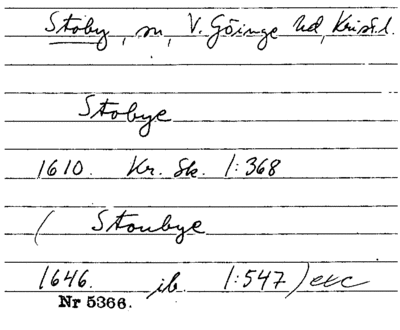 Stoby, sn, V. Göinge hd, Krist.l.
Stobye
1610. Kr. Sk. 1:368
( Stoubye
1646. ib. 1:547 ) exc
Nr 5366.